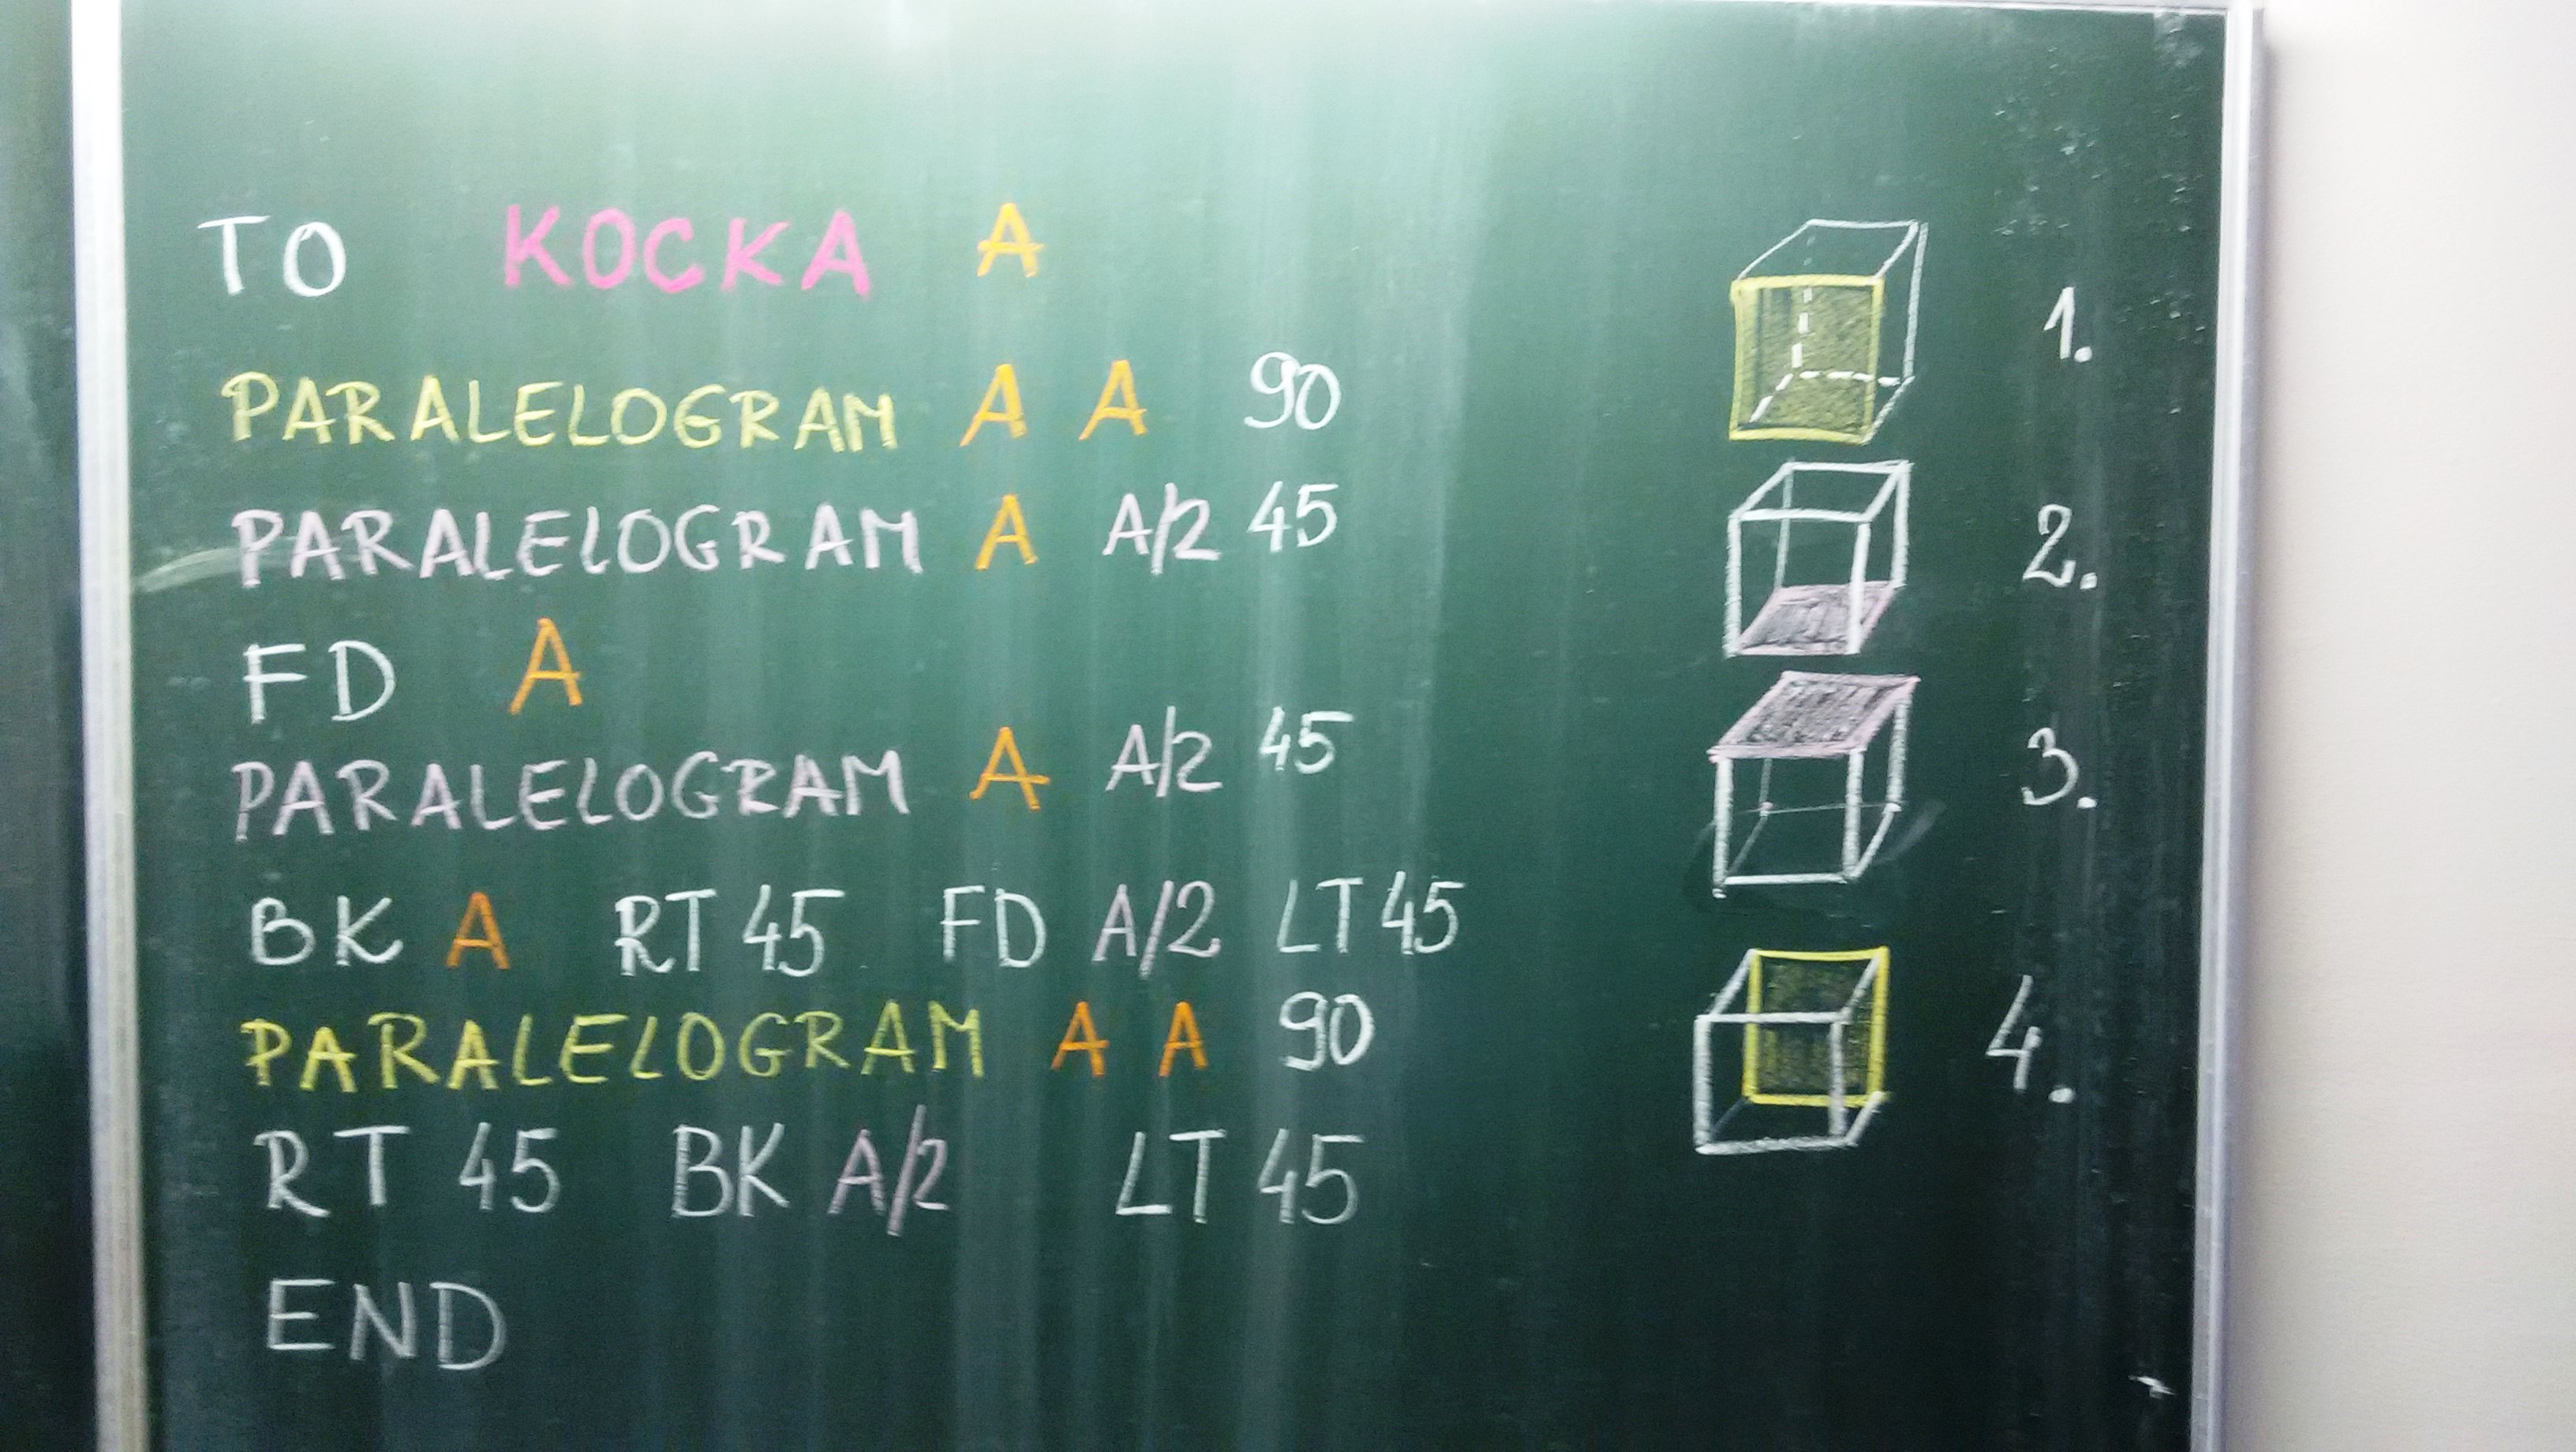 TO KOCKA A
PARALELOGRAM A A 90
PARALELOGRAM A A/2 45
FD A
PARALELOGRAM A A/2 45
BK A RT 45 FD A/2 LT 45
PARALELOGRAM A A 90
RT 45 BK A/2 LT 45
END
1.
2.
3.
4.